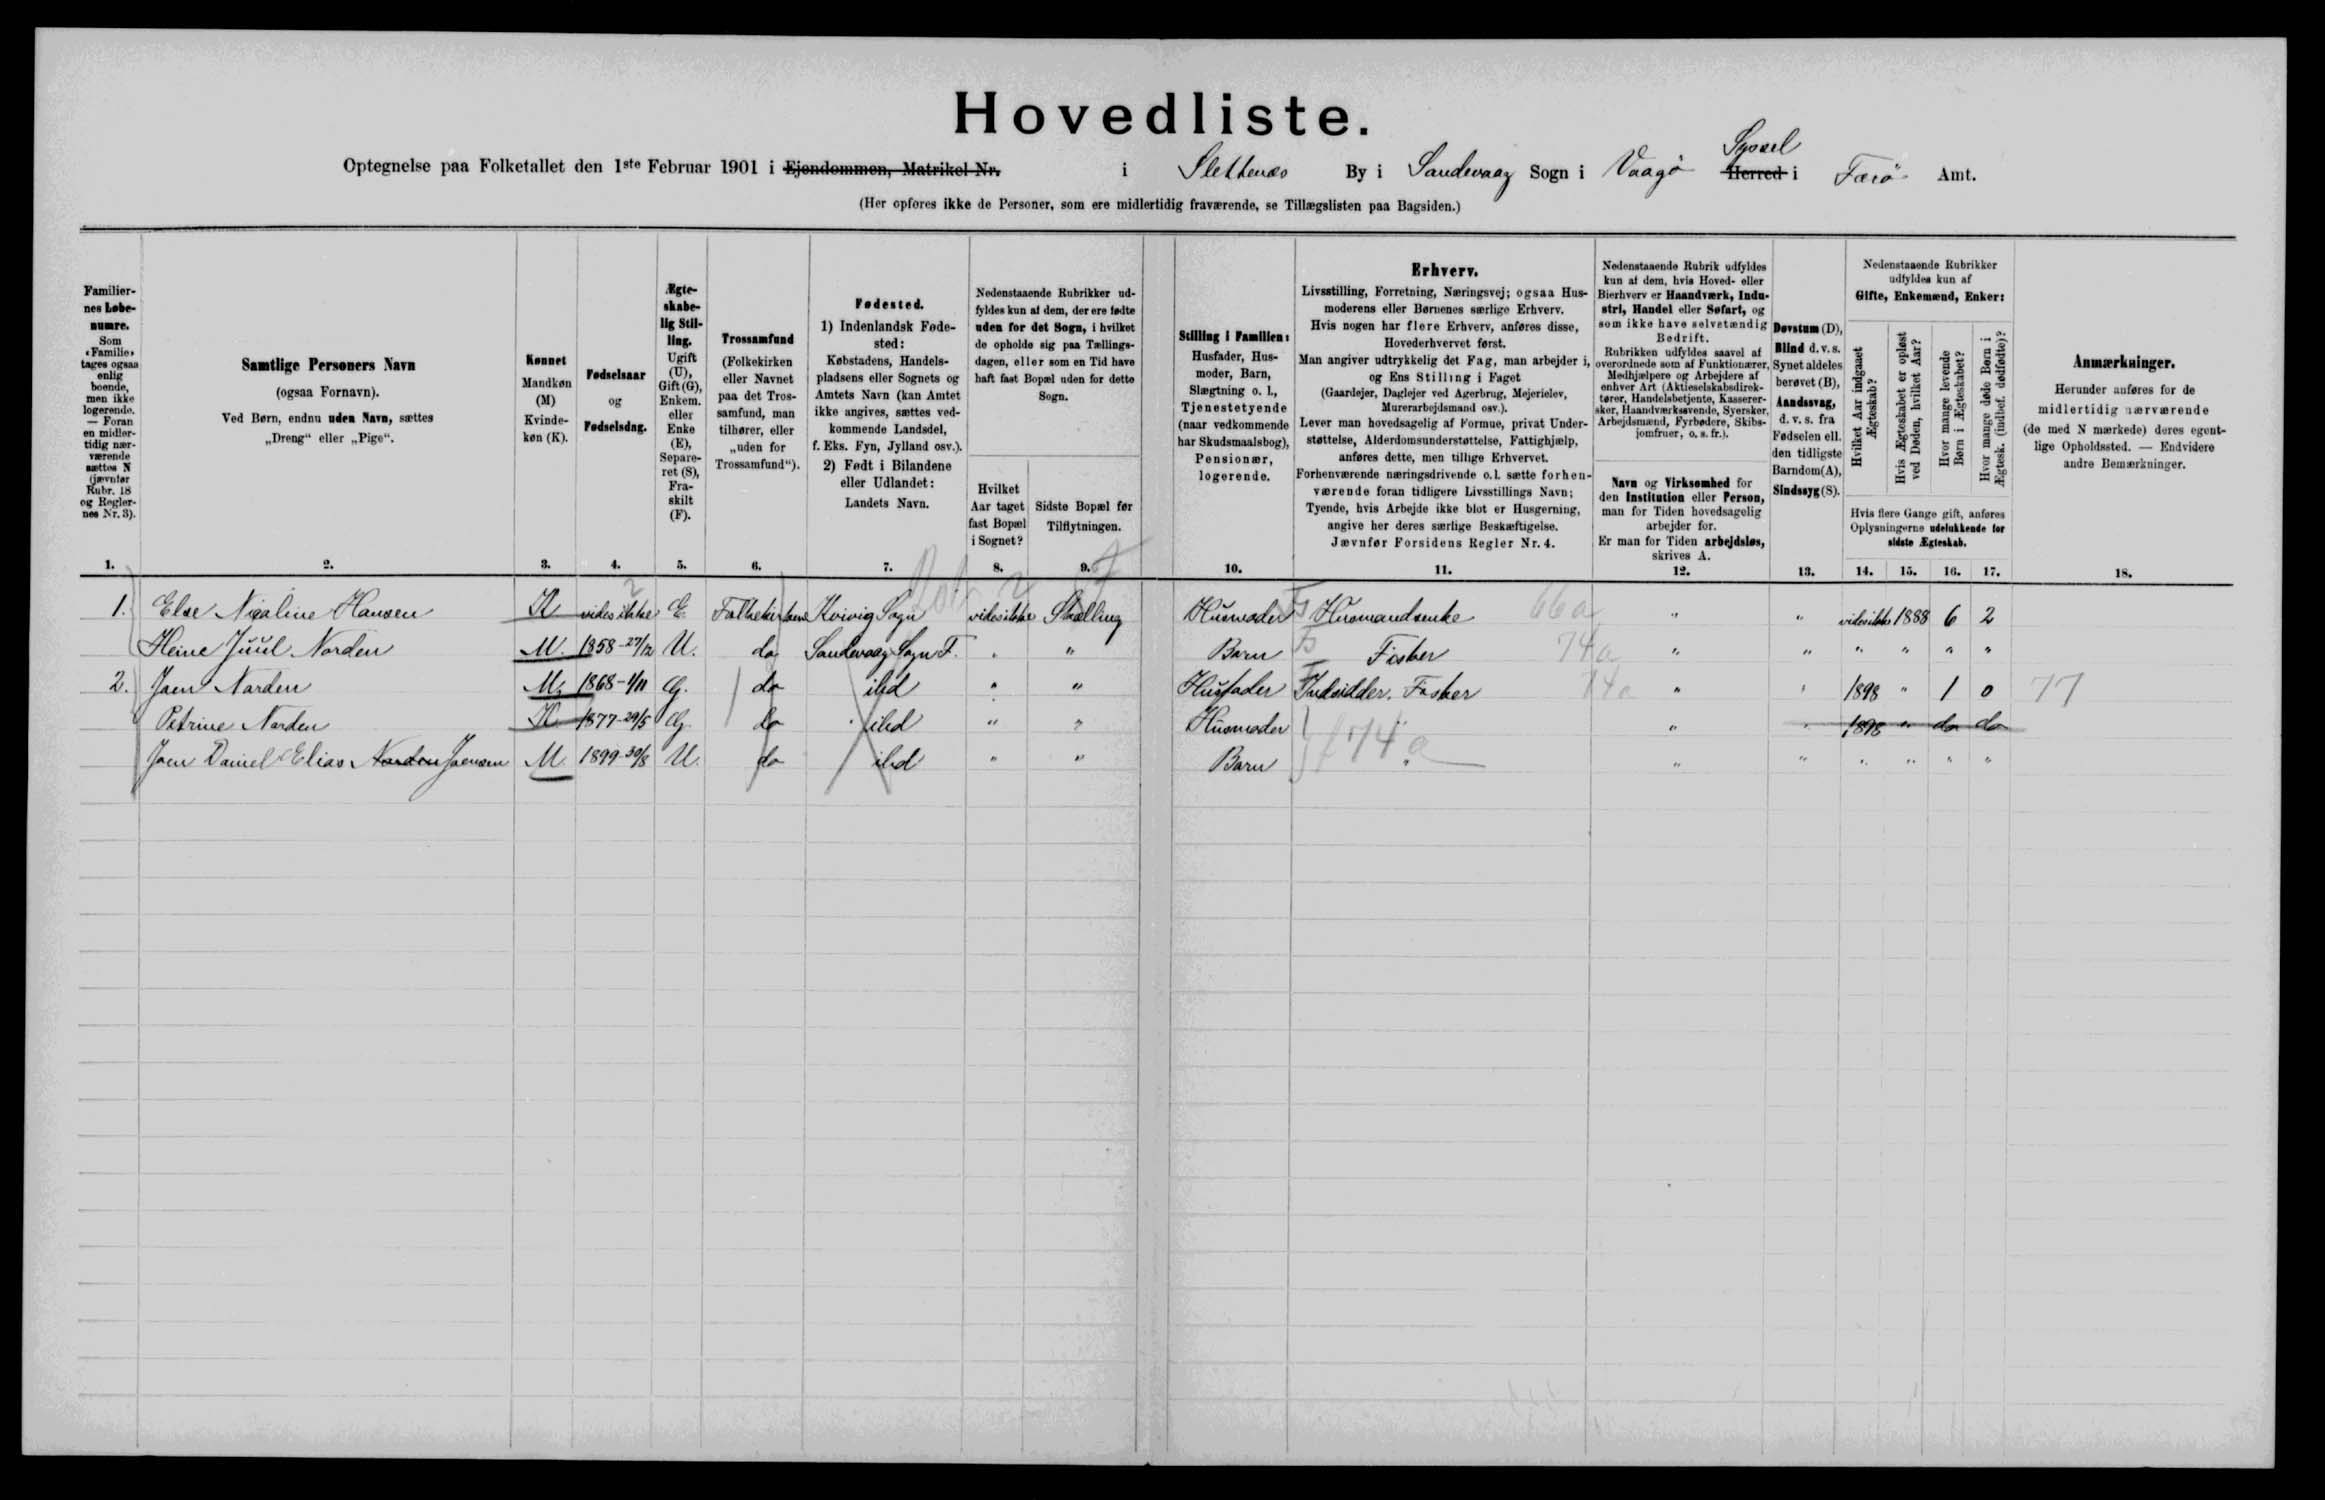 Hovedliste.
Optegnelse paa Folketallet den 1ste Februar 1901 i Ejendommen, Matrikel Nr. i Slettenæs By i Sandevaag Sogn i Vaagö Herred Syssel i Færö Amt.
(Her opføres ikke de Personer, som ere midlertidig fraværende, se Tillægslisten paa Bagsiden.)
Familiernes Løbenumre. Som «Familie» tages ogsaa enlig boende, men ikke logerende. — Foran en midlertidig nærværende sættes N (jævnfør Rubr. 18 og Reglernes Nr. 3).
Samtlige Personers Navn
(ogsaa Fornavn).
Ved Børn, endnu uden Navn, sættes
„Dreng“ eller „Pige“.
Kønnet
Mandkøn (M)
Kvindekøn (K).
Fødselsaar
og
Fødselsdag.
Ægteskabelig Stilling. Ugift (U), Gift (G), Enkem. eller Enke (E), Separeret (S), Fraskilt (F).
Trossamfund
(Folkekirken eller Navnet paa det Trossamfund, man tilhører, eller „uden for Trossamfund“).
Fødested.
1) Indenlandsk Fødested:
Købstadens, Handelspladsens eller Sognets og Amtets Navn (kan Amtet ikke angives, sættes vedkommende Landsdel, f. Eks. Fyn, Jylland osv.).
2) Født i Bilandene eller Udlandet:
Landets Navn.
Nedenstaaende Rubrikker udfyldes kun af dem, der ere fødte uden for det Sogn, i hvilket de opholde sig paa Tællingsdagen, eller som en Tid have haft fast Bopæl uden for dette Sogn.
Hvilket Aar taget fast Bopæl i Sognet?
Sidste Bopæl før Tilflytningen.
Stilling i Familien:
Husfader, Husmoder, Barn, Slægtning o. l., Tjenestetyende (naar vedkommende har Skudsmaalsbog), Pensionær, logerende.
Erhverv.
Livsstilling, Forretning, Næringsvej; ogsaa Husmoderens eller Børnenes særlige Erhverv.
Hvis nogen har flere Erhverv, anføres disse, Hovederhvervet først.
Man angiver udtrykkelig det Fag, man arbejder i, og Ens Stilling i Faget
(Gaardejer, Daglejer ved Agerbrug, Mejerielev, Murerarbejdsmand osv.).
Lever man hovedsagelig af Formue, privat Understøttelse, Alderdomsunderstøttelse, Fattighjælp, anføres dette, men tillige Erhvervet.
Forhenværende næringsdrivende o. l. sætte forhenværende foran tidligere Livsstillings Navn; Tyende, hvis Arbejde ikke blot er Husgerning, angive her deres særlige Beskæftigelse.
Jævnfør Forsidens Regler Nr. 4.
Nedenstaaende Rubrik udfyldes kun af dem, hvis Hoved- eller Bierhverv er Haandværk, Industri, Handel eller Søfart, og som ikke have selvstændig Bedrift.
Rubrikken udfyldes saavel af overordnede som af Funktionærer, Medhjælpere og Arbejdere af enhver Art (Aktieselskabsdirektører, Handelsbetjente, Kasserersker, Haandværkssvende, Syersker, Arbejdsmænd, Fyrbødere, Skibsjomfruer, o. s. fr.).
Navn og Virksomhed for den Institution eller Person, man for Tiden hovedsagelig arbejder for.
Er man for Tiden arbejdsløs, skrives A.
Døvstum (D), Blind d. v. s. Synet aldeles berøvet (B), Aandssvag, d. v. s. fra Fødselen ell. den tidligste Barndom (A), Sindssyg (S).
Nedenstaaende Rubrikker udfyldes kun af
Gifte, Enkemænd, Enker:
Hvilket Aar indgaaet Ægteskab?
Hvis Ægteskabet er opløst ved Døden, hvilket Aar?
Hvor mange levende Børn i Ægteskabet?
Hvor mange døde Børn i Ægtesk. (indbef. dødfødte)?
Hvis flere Gange gift, anføres Oplysningerne udelukkende for sidste Ægteskab.
Anmærkninger.
Herunder anføres for de midlertidig nærværende (de med N mærkede) deres egentlige Opholdssted. — Endvidere andre Bemærkninger.
1. 2. 3. 4. 5. 6. 7. 8. 9. 10. 11. 12. 13. 14. 15. 16. 17. 18.
1. Else Nicoline Hansen K vides ikke E. Folkekirken Kvivig Sogn vides ikke Skælling Husmoder Husmandsenke 66a " " vides ikke 1888 6 2
Heine Juul Norden M. 1858-27/12 U. do Sandevaag Sogn F. " " Barn Fisker 74a " " " " " "
2. Joen Norden M. 1868-1/11 G. do ibd " " Husfader Indsidder. Fisker 74a " " 1898 " 1 0 77
Petrine Norden K 1877-29/5 G. do ibd " " Husmoder " " 1898 " do do
Joen Daniel Elias Norden Joensen M. 1899-30/8 U. do ibd " " Barn f 74a " " " " " "